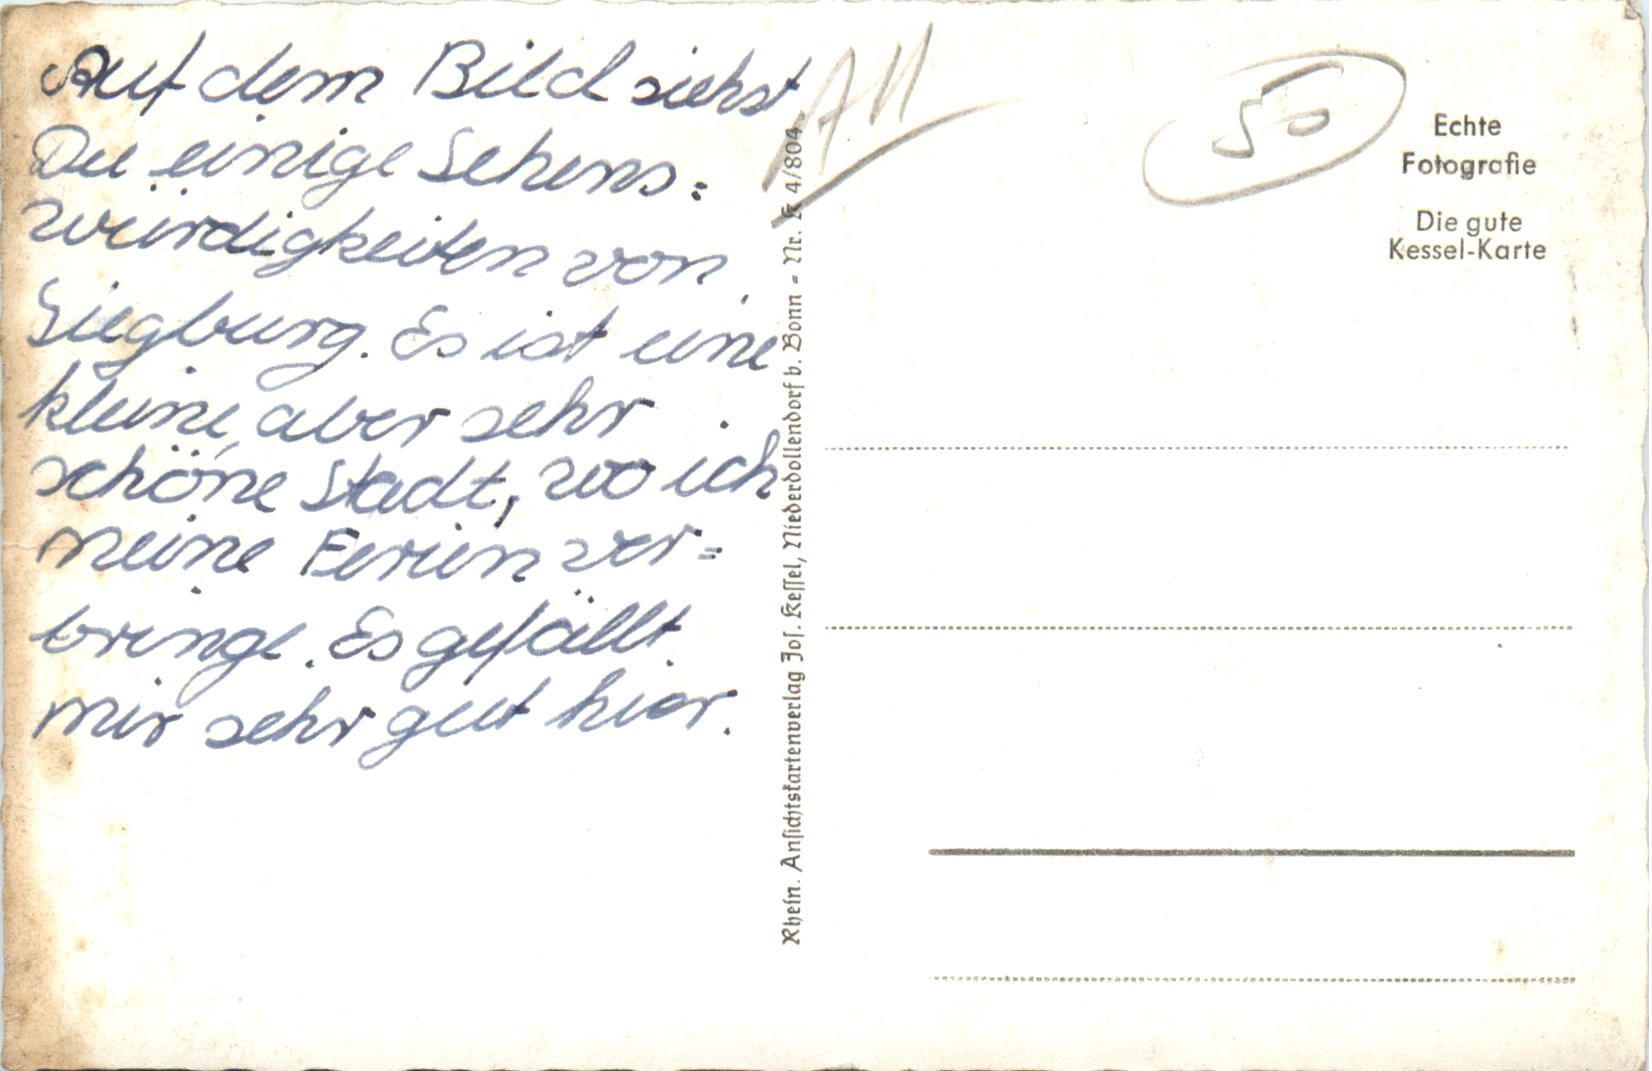 Auf dem Bild siehst
Du einige Sehens=
würdigkeiten von
Siegburg. Es ist eine
kleine, aber sehr
schöne Stadt, wo ich
meine Ferien ver=
bringe. Es gefällt
mir sehr gut hier.
Rhein. Ansichtskartenverlag Jos. Kessel, Niederdollendorf b. Bonn = Nr. K 4/804
50
Echte
Fotografie
Die gute
Kessel-Karte